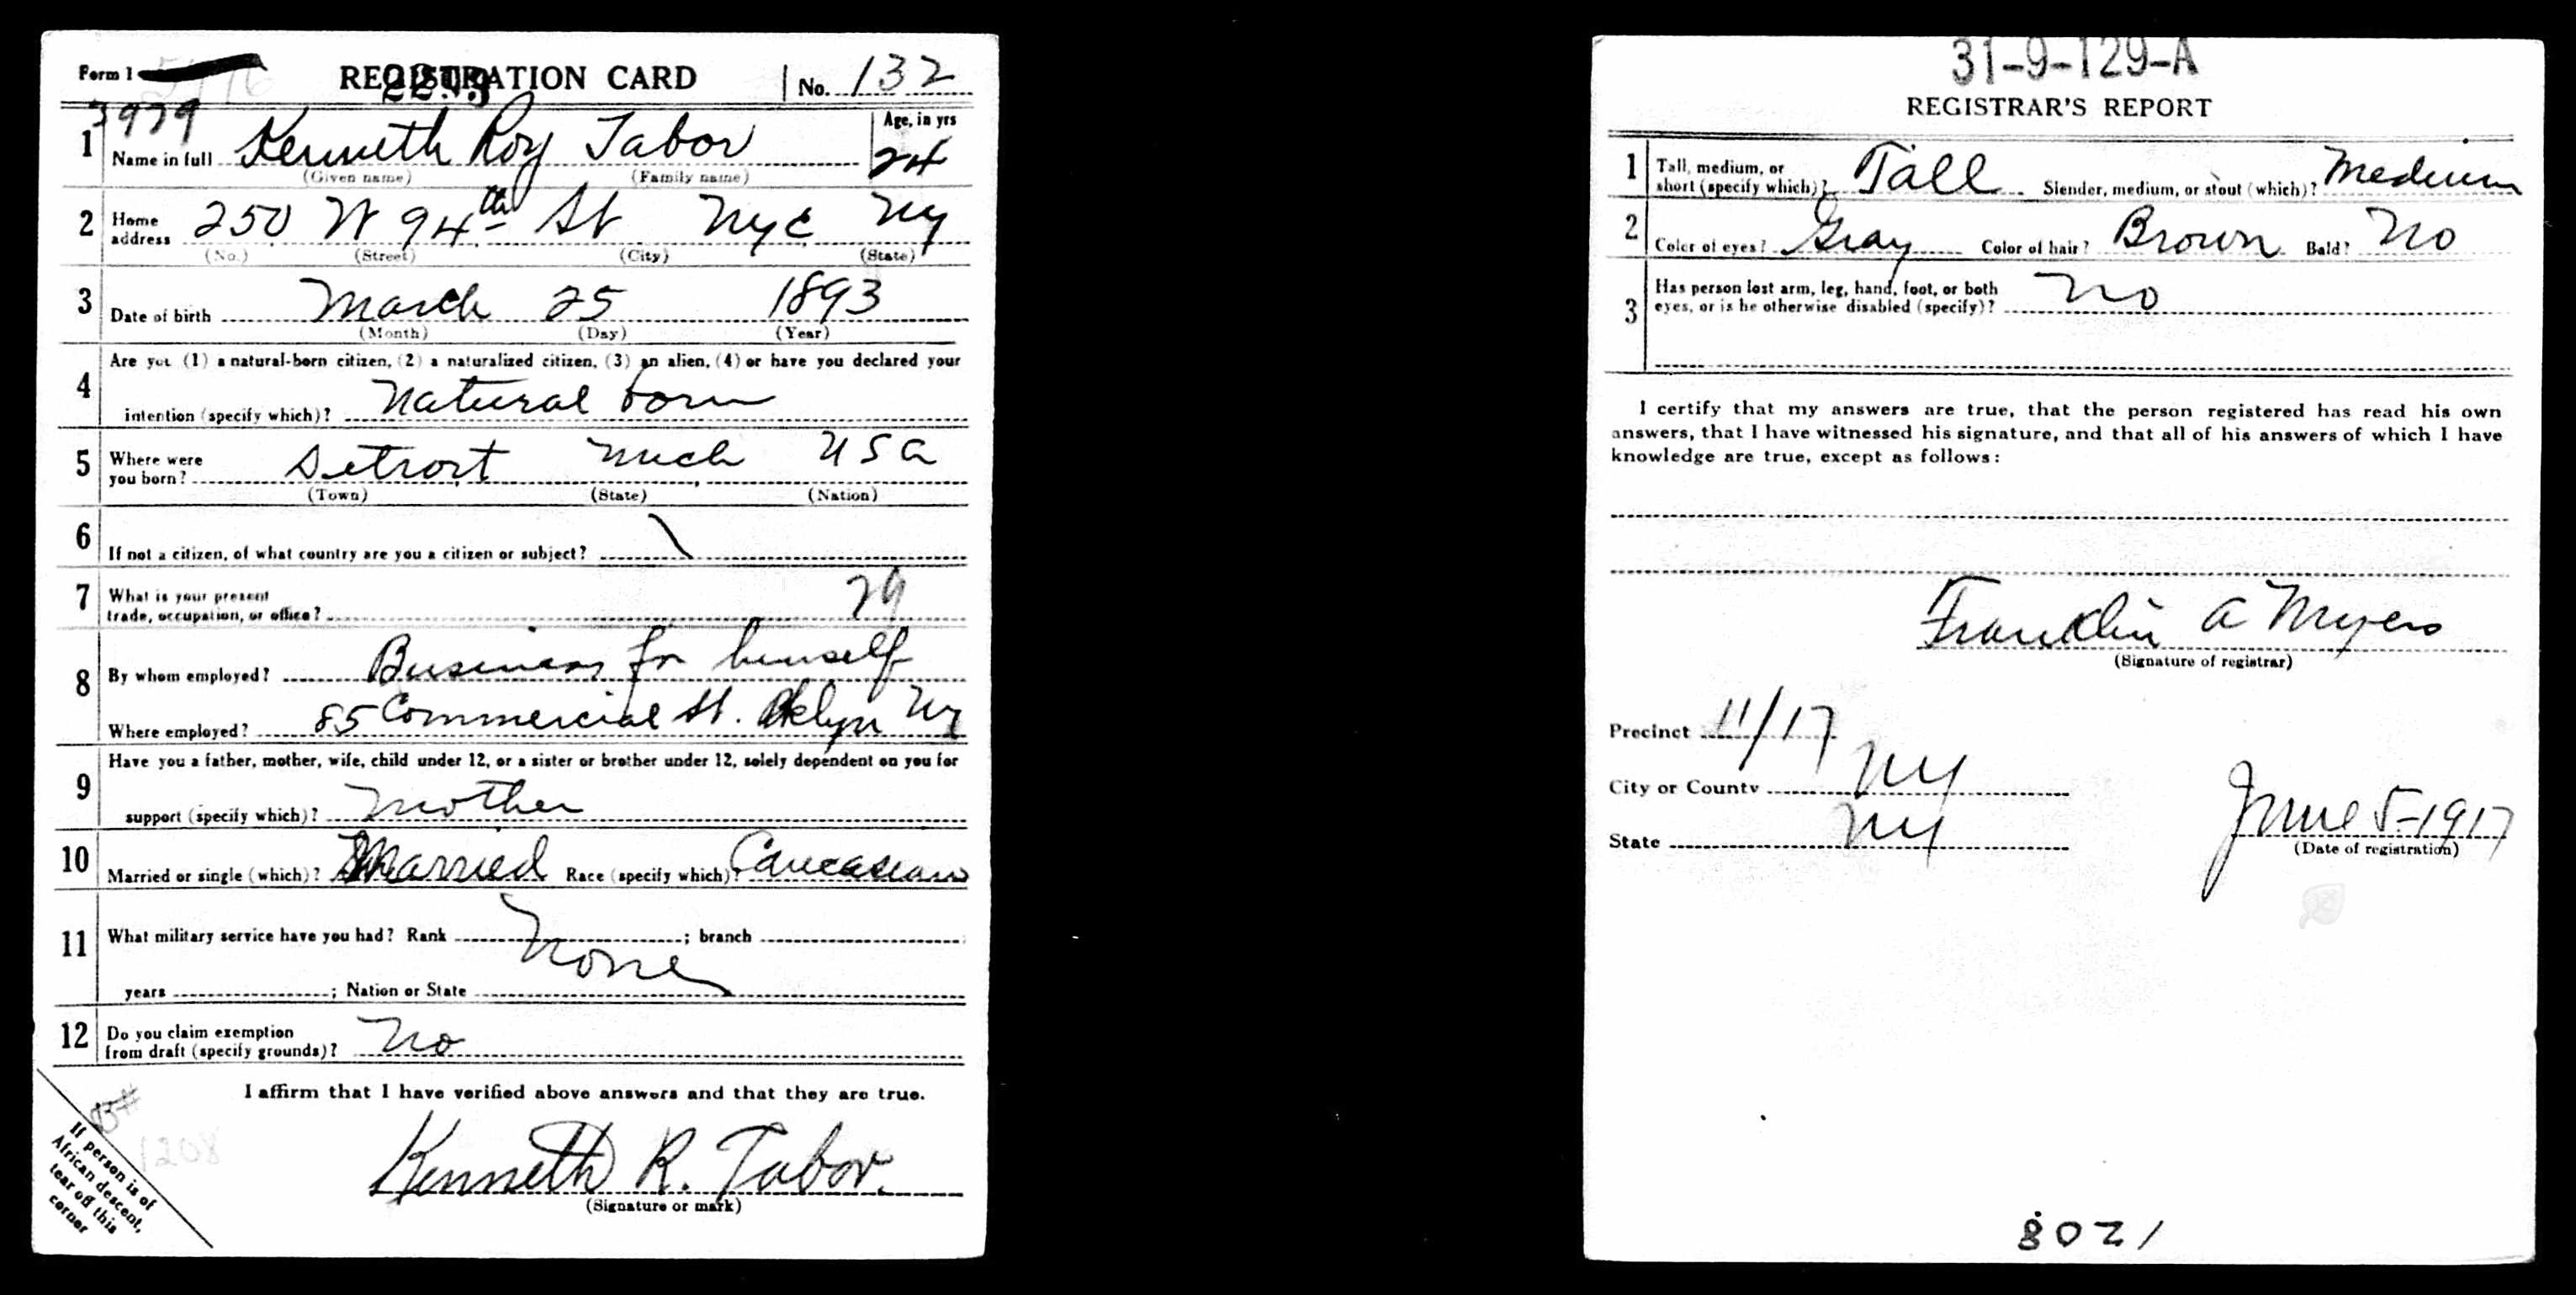 Form 1 REGISTRATION CARD No. 132
2203
3979
1 Name in full Kenneth Roy Tabor Age, in yrs 24
(Given name) (Family name)
2 Home address 250 W 94th St NYC NY
(No.) (Street) (City) (State)
3 Date of birth March 25 1893
(Month) (Day) (Year)
4 Are you (1) a natural-born citizen, (2) a naturalized citizen, (3) an alien, (4) or have you declared your
intention (specify which)? Natural born
5 Where were you born? Detroit Mich USA
(Town) (State) (Nation)
6 If not a citizen, of what country are you a citizen or subject? \
7 What is your present
trade, occupation, or office? 29
8 By whom employed? Business for himself
Where employed? 85 Commercial St. Bklyn NY
9 Have you a father, mother, wife, child under 12, or a sister or brother under 12, solely dependent on you for
support (specify which)? Mother
10 Married or single (which)? Married Race (specify which)? Caucasian
11 What military service have you had? Rank None ; branch
years ; Nation or State
12 Do you claim exemption
from draft (specify grounds)? No
I affirm that I have verified above answers and that they are true.
Kenneth R. Tabor.
(Signature or mark)
If person is of
African descent,
tear off this
corner
1208
31-9-129-A
REGISTRAR'S REPORT
1 Tall, medium, or
short (specify which)? Tall Slender, medium, or stout (which)? Medium
2 Color of eyes? Gray Color of hair? Brown Bald? No
3 Has person lost arm, leg, hand, foot, or both
eyes, or is he otherwise disabled (specify)? No
I certify that my answers are true, that the person registered has read his own
answers, that I have witnessed his signature, and that all of his answers of which I have
knowledge are true, except as follows:
Franklin A Myers
(Signature of registrar)
Precinct 11/17
City or County NY
State NY June 5-1917
(Date of registration)
1208